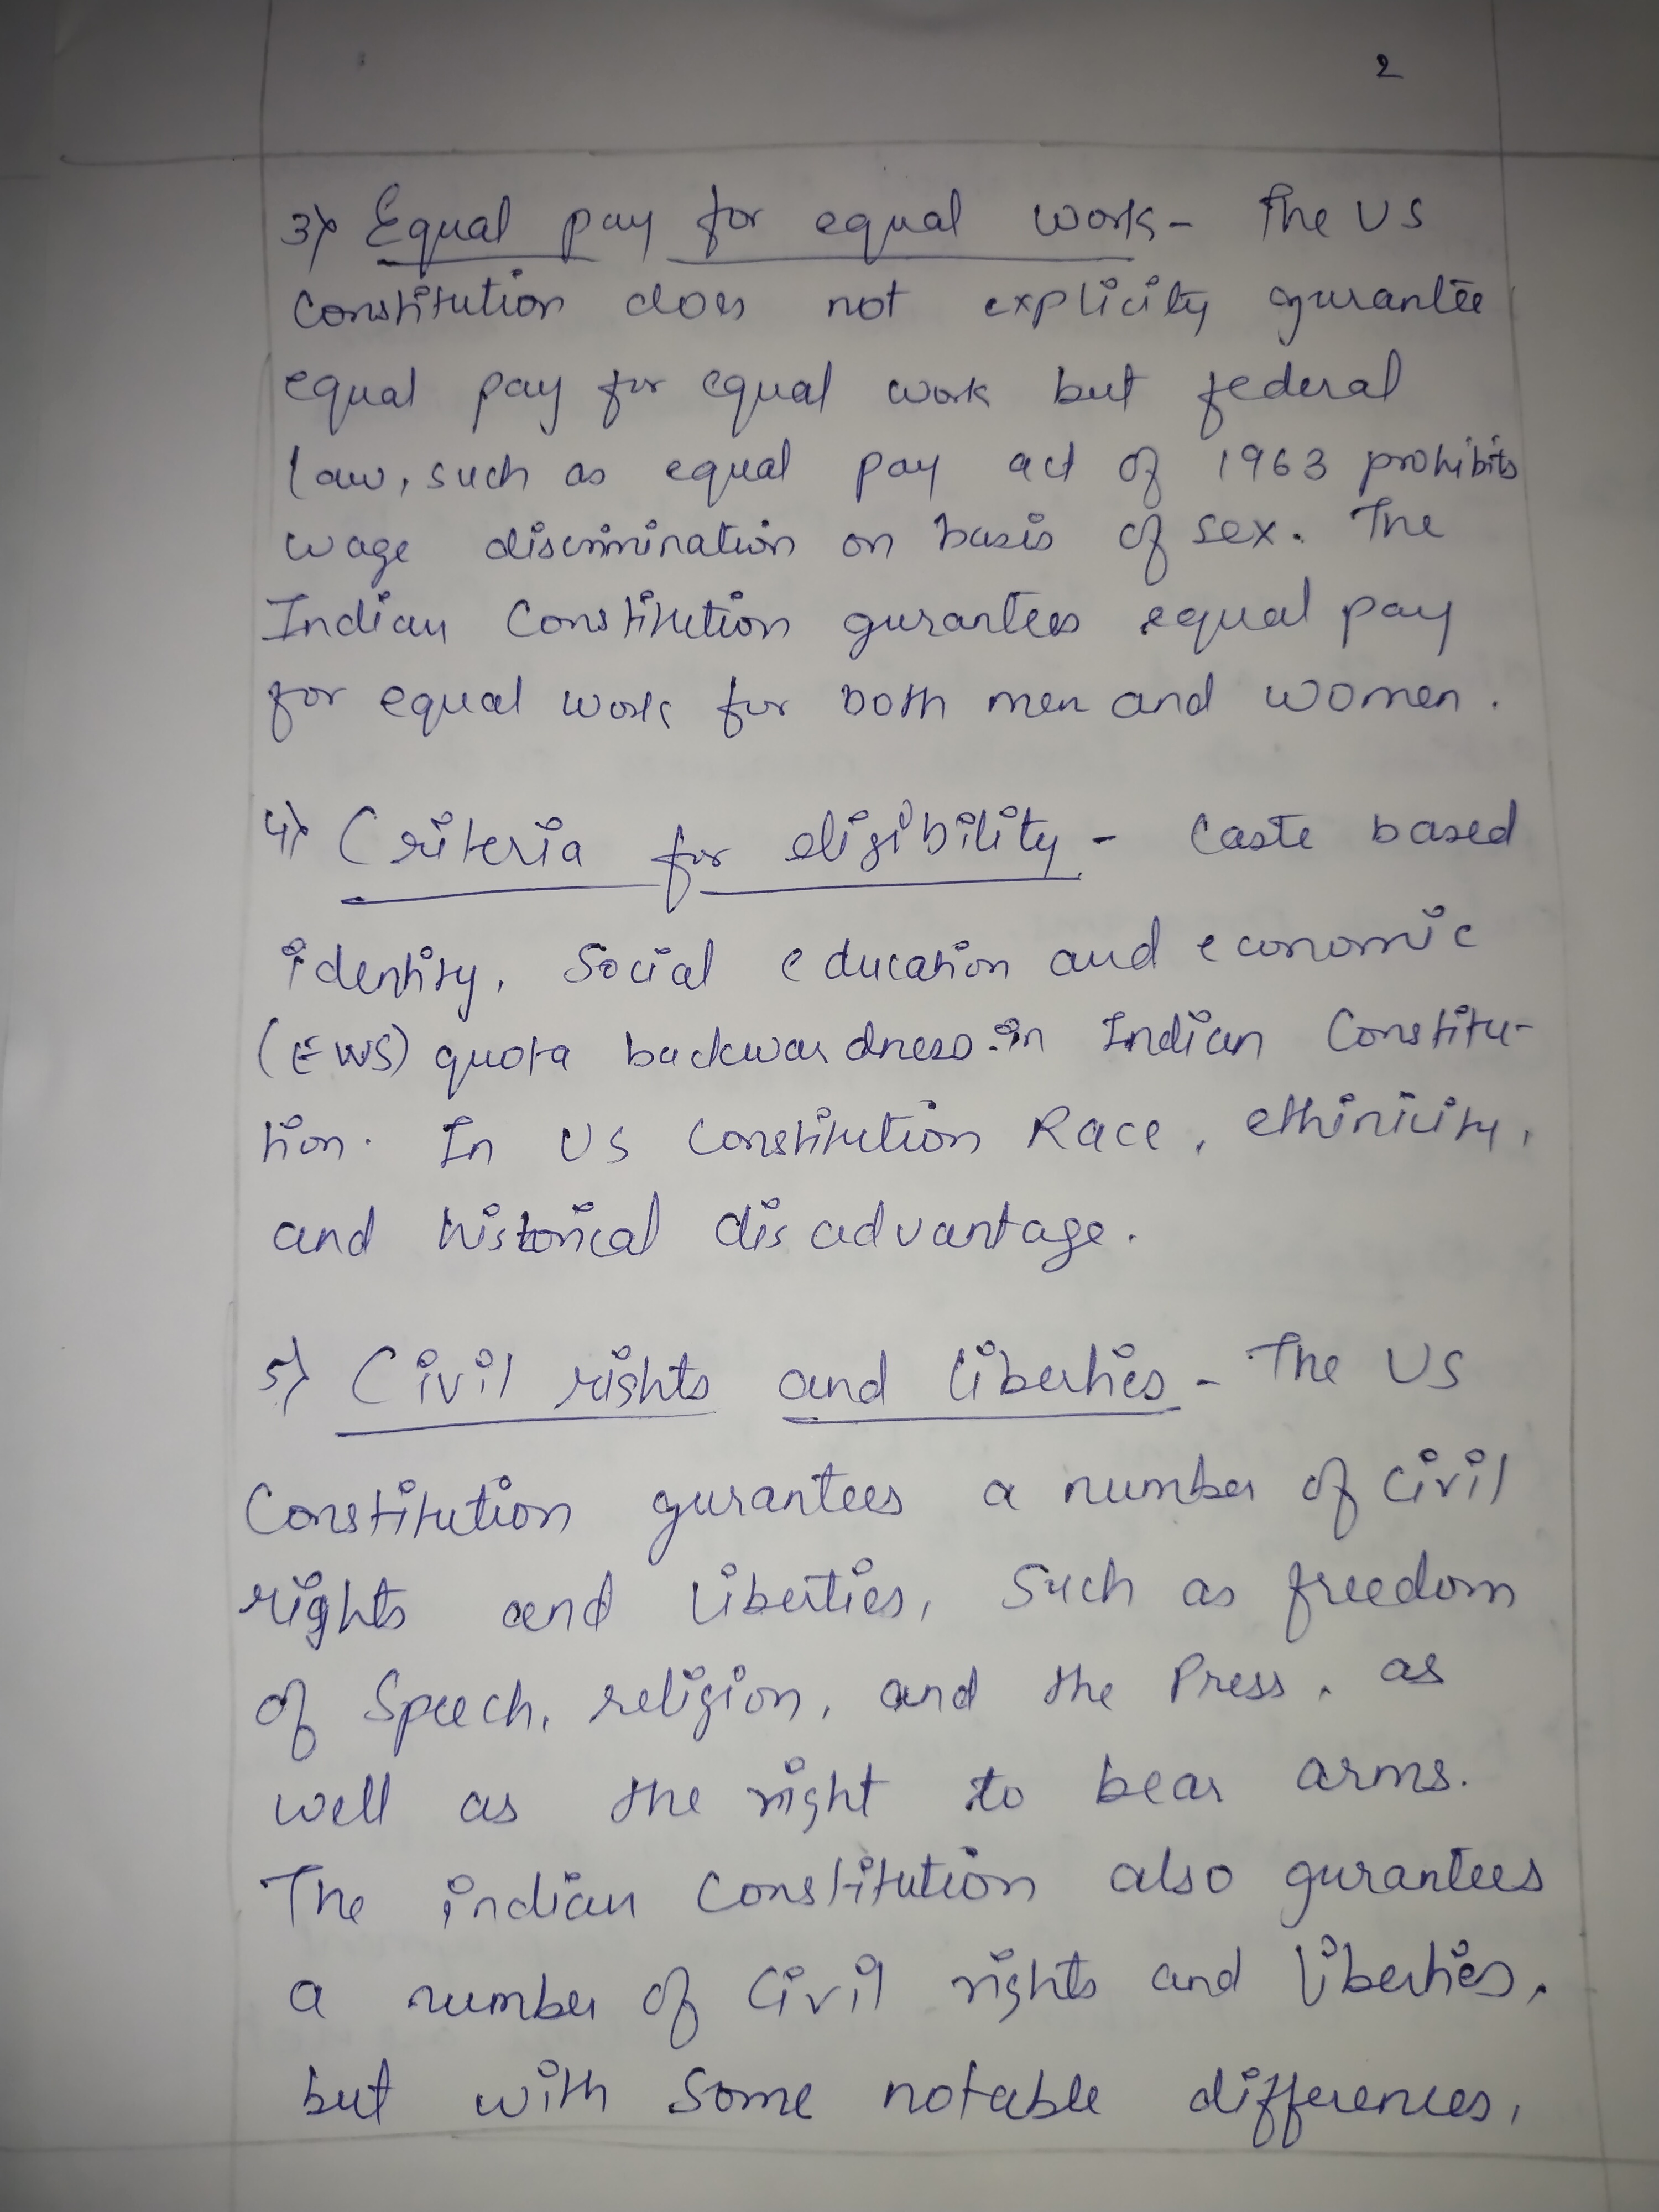 2
3) Equal pay for equal work - The US
Constitution does not explicity gurantee
equal pay for equal work but federal
law, such as equal pay act of 1963 prohibits
wage discrimination on basis of sex. The
Indian Constitution gurantees equal pay
for equal work for both men and women.
4) Criteria for eligibility - Caste based
identity, Social education and economic
(EWS) quota backwardness in Indian Constitu-
tion. In US Constitution Race, ethinicity,
and historical disadvantage.
5) Civil rights and liberties - The US
Constitution gurantees a number of Civil
rights and liberties, Such as freedom
of Speech, religion, and the Press, as
well as the right to bear arms.
The indian Constitution also gurantees
a number of Civil rights and liberties,
but with Some notable differences,